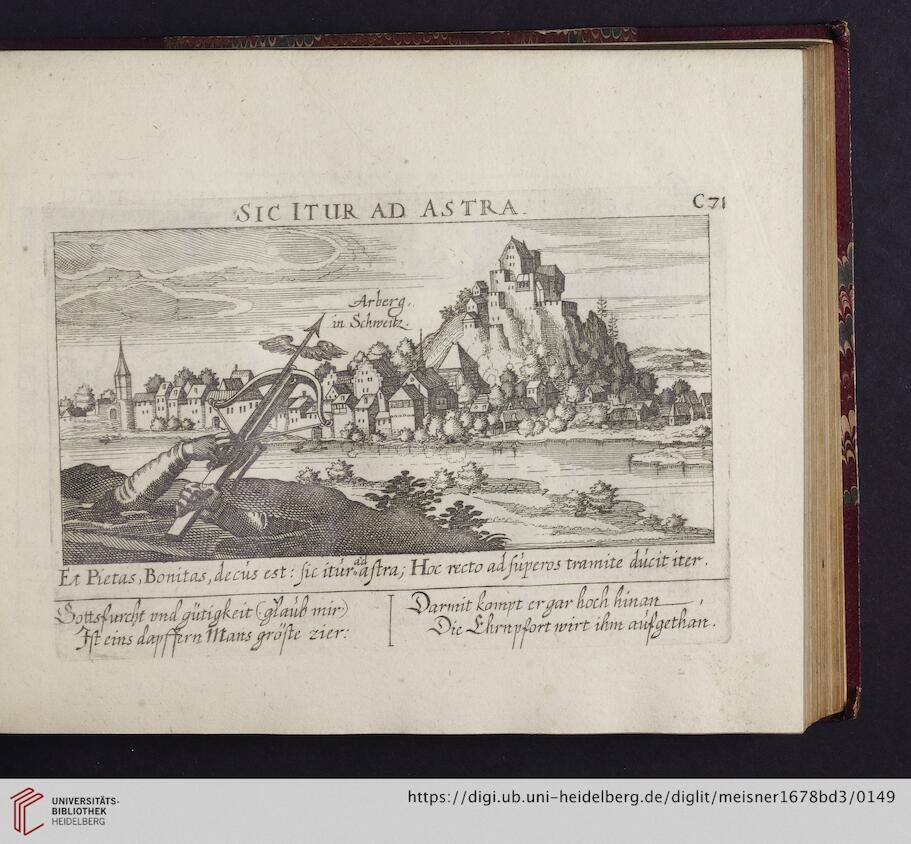 SIC ITUR AD ASTRA.
C71
Arberg,
in Schweitz.
Et Pietas, Bonitas, decus est: sic itur ad astra; Hoc recto ad superos tramite ducit iter.
Gottsfurcht vnd gütigkeit (glaub mir)
Ist eins dapffern Mans gröste zier:
Darmit kompt er gar hoch hinan,
Die Ehrnpfort wirt ihm aufgethan.
UNIVERSITÄTS-
BIBLIOTHEK
HEIDELBERG
https://digi.ub.uni-heidelberg.de/diglit/meisner1678bd3/0149